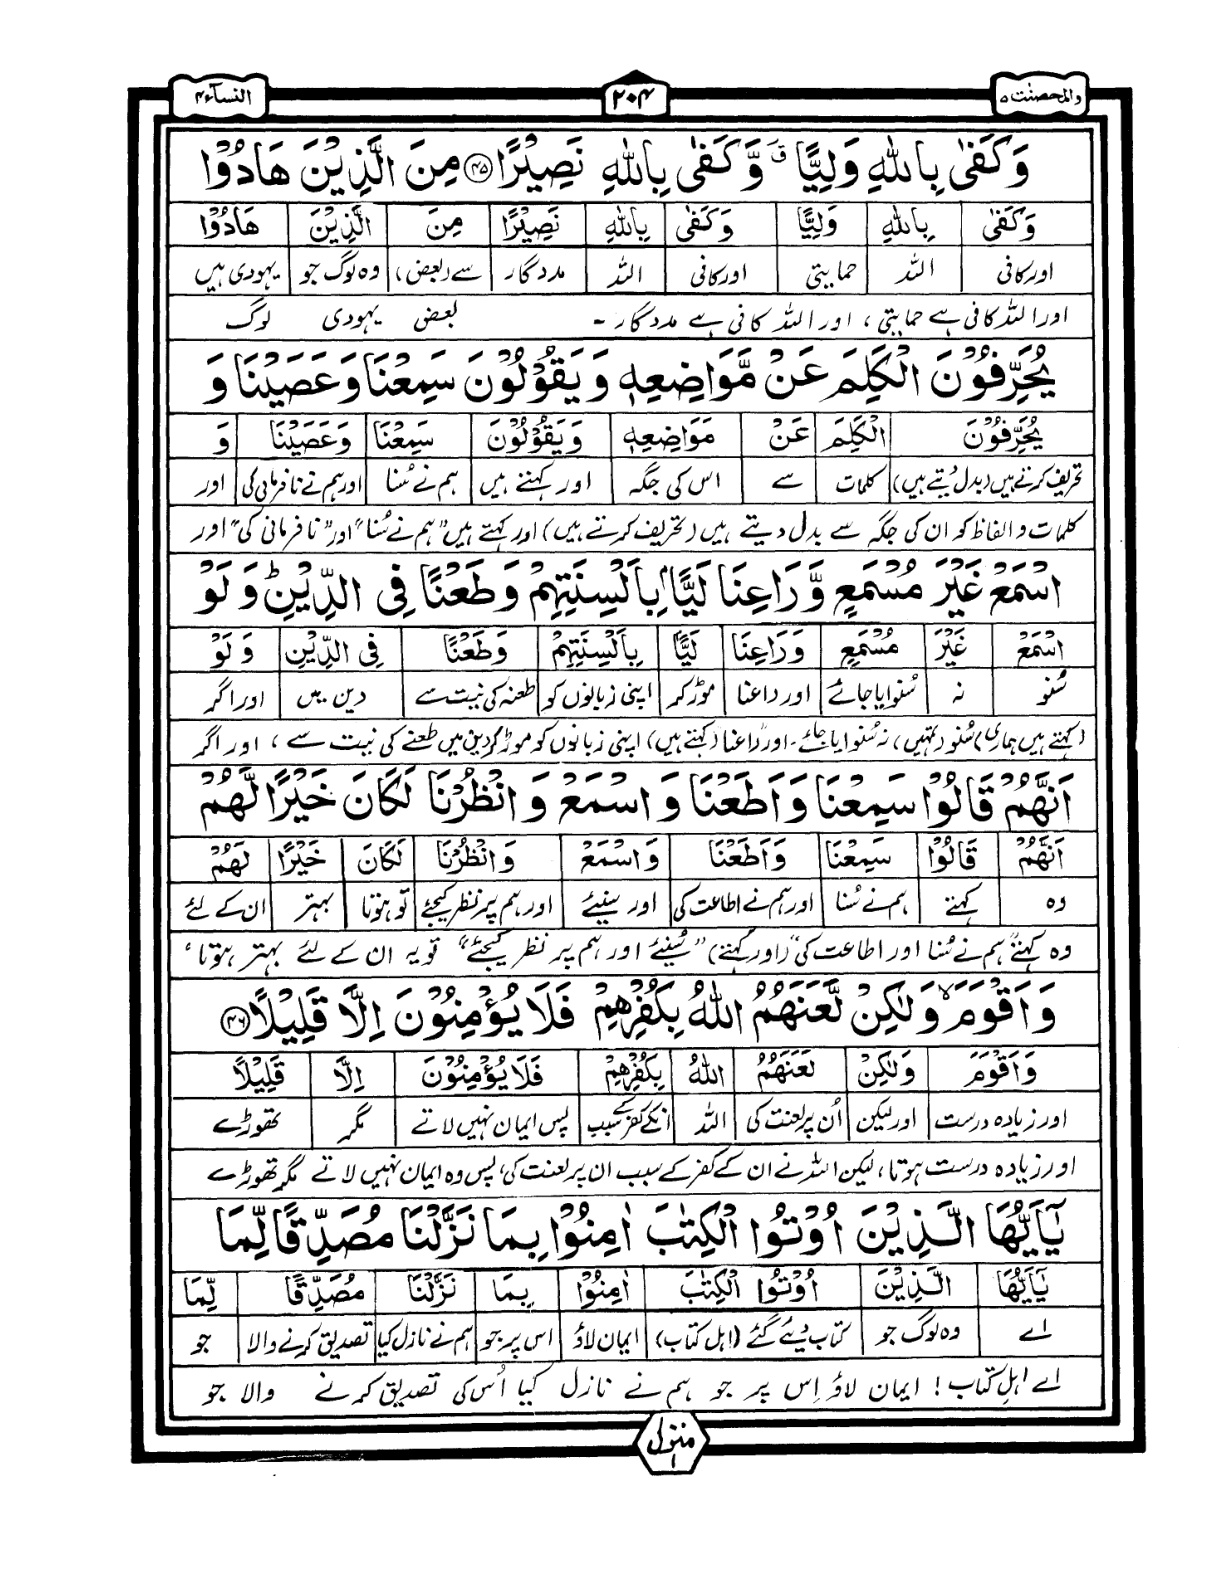 والمحصنت ۵ ۲۰۴ النسآء ۴
وَكَفٰى بِاللّٰهِ وَلِيًّا ۙ وَّكَفٰى بِاللّٰهِ نَصِيْرًا ﴿۴۵﴾ مِنَ الَّذِيْنَ هَادُوْا
وَكَفٰى بِاللّٰهِ وَلِيًّا وَكَفٰى بِاللّٰهِ نَصِيْرًا مِنَ الَّذِيْنَ هَادُوْا
اور کافی اللہ حمایتی اور کافی اللہ مددگار سے (بعض) وہ لوگ جو یہودی ہیں
اور اللہ کافی ہے حمایتی ، اور اللہ کافی ہے مددگار ۔ بعض یہودی لوگ
يُحَرِّفُوْنَ الْكَلِمَ عَنْ مَّوَاضِعِهٖ وَيَقُوْلُوْنَ سَمِعْنَا وَعَصَيْنَا وَ
يُحَرِّفُوْنَ الْكَلِمَ عَنْ مَوَاضِعِهٖ وَيَقُوْلُوْنَ سَمِعْنَا وَعَصَيْنَا وَ
تحریف کرتے ہیں (بدل دیتے ہیں) کلمات سے اس کی جگہ اور کہتے ہیں ہم نے سُنا اور ہم نے نافرمانی کی اور
کلمات و الفاظ کو ان کی جگہ سے بدل دیتے ہیں (تحریف کرتے ہیں) اور کہتے ہیں "ہم نے سُنا" اور "نافرمانی کی" اور
اسْمَعْ غَيْرَ مُسْمَعٍ وَّرَاعِنَا لَيًّۢا بِاَلْسِنَتِهِمْ وَطَعْنًا فِى الدِّيْنِ ؕ وَلَوْ
اسْمَعْ غَيْرَ مُسْمَعٍ وَرَاعِنَا لَيًّا بِاَلْسِنَتِهِمْ وَطَعْنًا فِى الدِّيْنِ وَلَوْ
سُنو نہ سُنوایا جائے اور راعنا موڑ کر اپنی زبانوں کو طعنہ کی نیت سے دین میں اور اگر
(کہتے ہیں ہماری) سُنو (تمہیں) نہ سُنوایا جائے ۔ اور "راعنا" (کہتے ہیں) اپنی زبانوں کو موڑ کر دین میں طعنے کی نیت سے ، اور اگر
اَنَّهُمْ قَالُوْا سَمِعْنَا وَاَطَعْنَا وَاسْمَعْ وَانْظُرْنَا لَكَانَ خَيْرًا لَّهُمْ
اَنَّهُمْ قَالُوْا سَمِعْنَا وَاَطَعْنَا وَاسْمَعْ وَانْظُرْنَا لَكَانَ خَيْرًا لَهُمْ
وہ کہتے ہم نے سُنا اور ہم نے اطاعت کی اور سنیئے اور ہم پر نظر کیجئے تو ہوتا بہتر ان کے لئے
وہ کہتے "ہم نے سُنا اور اطاعت کی" (اور کہتے) "سُنیئے اور ہم پر نظر کیجئے" تو یہ ان کے لئے بہتر ہوتا ،
وَاَقْوَمَ ۙ وَلٰكِنْ لَّعَنَهُمُ اللّٰهُ بِكُفْرِهِمْ فَلَا يُؤْمِنُوْنَ اِلَّا قَلِيْلًا ﴿۴۶﴾
وَاَقْوَمَ وَلٰكِنْ لَعَنَهُمُ اللّٰهُ بِكُفْرِهِمْ فَلَا يُؤْمِنُوْنَ اِلَّا قَلِيْلًا
اور زیادہ درست اور لیکن اُن پر لعنت کی اللہ انکے کفر کے سبب پس ایمان نہیں لاتے مگر تھوڑے
اور زیادہ درست ہوتا ، لیکن اللہ نے ان کے کفر کے سبب ان پر لعنت کی ، پس وہ ایمان نہیں لاتے مگر تھوڑے
يٰۤاَيُّهَا الَّذِيْنَ اُوْتُوا الْكِتٰبَ اٰمِنُوْا بِمَا نَزَّلْنَا مُصَدِّقًا لِّمَا
يٰۤاَيُّهَا الَّذِيْنَ اُوْتُوا الْكِتٰبَ اٰمِنُوْا بِمَا نَزَّلْنَا مُصَدِّقًا لِّمَا
اے وہ لوگ جو کتاب دیئے گئے (اہل کتاب) ایمان لاؤ اس پر جو ہم نے نازل کیا تصدیق کرنے والا جو
اے اہل کتاب ! ایمان لاؤ اس پر جو ہم نے نازل کیا اُس کی تصدیق کرنے والا جو
منزل ۱